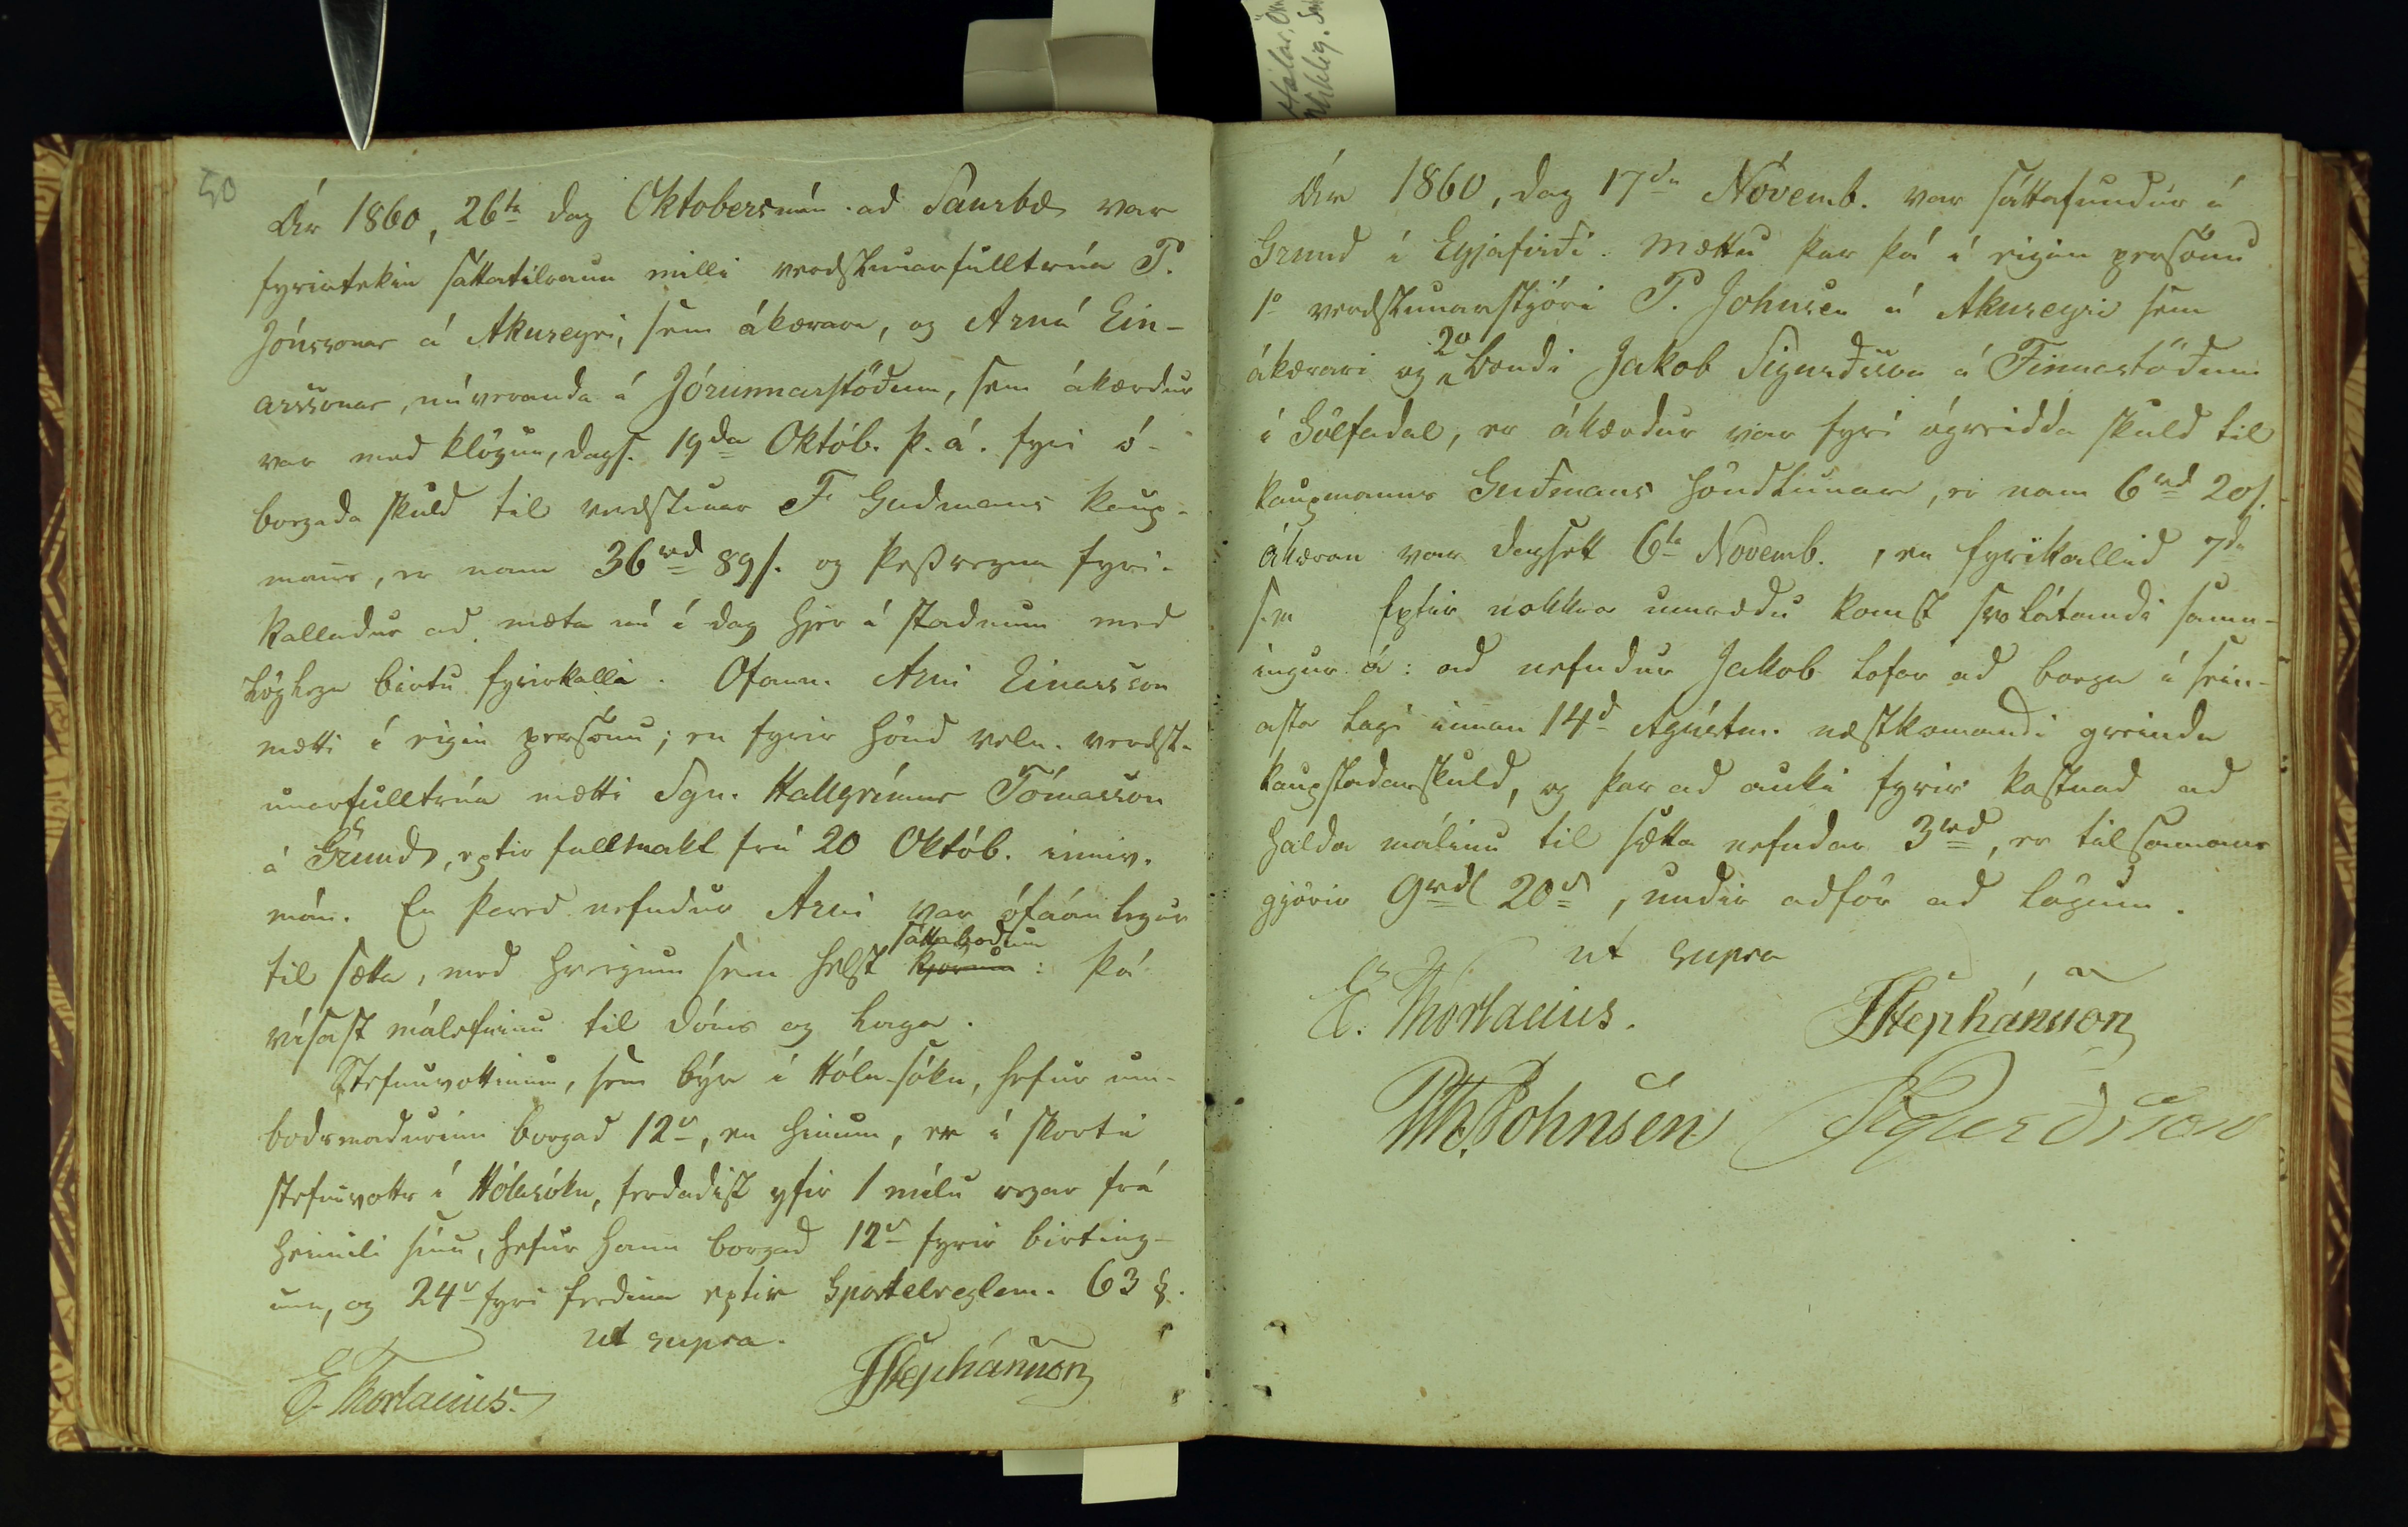 50
Ár 1860, 26ta dag Oktobersmán. ad Saurbæ var
fyrirtekin sáttatilraun milli verdslunarfulltrúa P.
Jónssonar á Akureyri, sem ákærara, og Arna Ein-
arssonar, núveranda á Jórunnarstöðum, sem ákærdur
var med klögun, dags. 19da Októb. þ. á. fyri ó-
borgada skuld til verdslunar F Gudmans kaup-
manns, er nam 36rd 89s. og þessvegna fyri-
kalladur ad mæta nú í dag hjer á stadnum med
löglega birtu fyrirkalli. Ofann. Arni Einarsson
mætti í eigin persónu; en fyrir hönd veln. verdsl-
unarfulltrúa mætti Sgn. Hallgrímur Tómasson
á Grund, eptir fullmakt frá 20 Októb. inniv.
mán. En þared nefndur Arni var ófáanlegur
sáttabodum
til sætta, med hverjum sem helst kjörum: þá
vísast málefninu til dóms og laga.
Stefnuvottinum, sem býr í Hóla-sókn, hefur um-
bodsmadurinn borgad 12s, en hinum, er í skorti
stefnuvotts í Hólasókn, ferdadist yfir 1 mílu vegar frá
heimili sínu, hefur hann borgad 12s fyrir birting-
una, og 24s fyri ferdina eptir Sportelreglem. 63 §.
ut supra.
E. Thorlacius.
JStephánsson
Ár 1860, dag 17da Nóvemb. var sáttafundur á
Grund í Eyjafirði. Mættu þar þá í eigin persónu
1o verdslunarstjóri P. Johnsen á Akureyri sem
ákærari og 2o bondi Jakob Sigurdsson á Finnastöðum
í Sölfadal, er ákærdur var fyri ógreidda skuld til
kaupmanns Guðmans höndlunar, er nam 6rd 20s.
Ákæran var dagsett 6ta Novemb., en fyrikallid 7da
s. m. Eptir nokkra umrædu komst svolátandi samn-
ingur á: ad nefndur Jakob lofar ad borga í sein-
asta lagi innan 14d Agústm. næstkomandi greinda
kaupstadarskuld, og þar ad auki fyrir kostnad ad
halda málinu til sætta nefndar 3rd, er tilsamans
gjörir 9rd 20s, undir adför ad lögum.
ut supra
E. Thorlacius.
JStephánsson
PTh. Johnsen
Sigurdsson